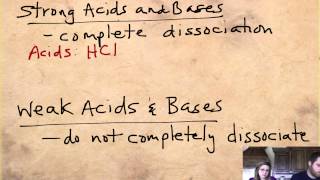 Strong Acids and Bases
- complete dissociation
Acids: HCl
Weak Acids & Bases
- do not completely dissociate